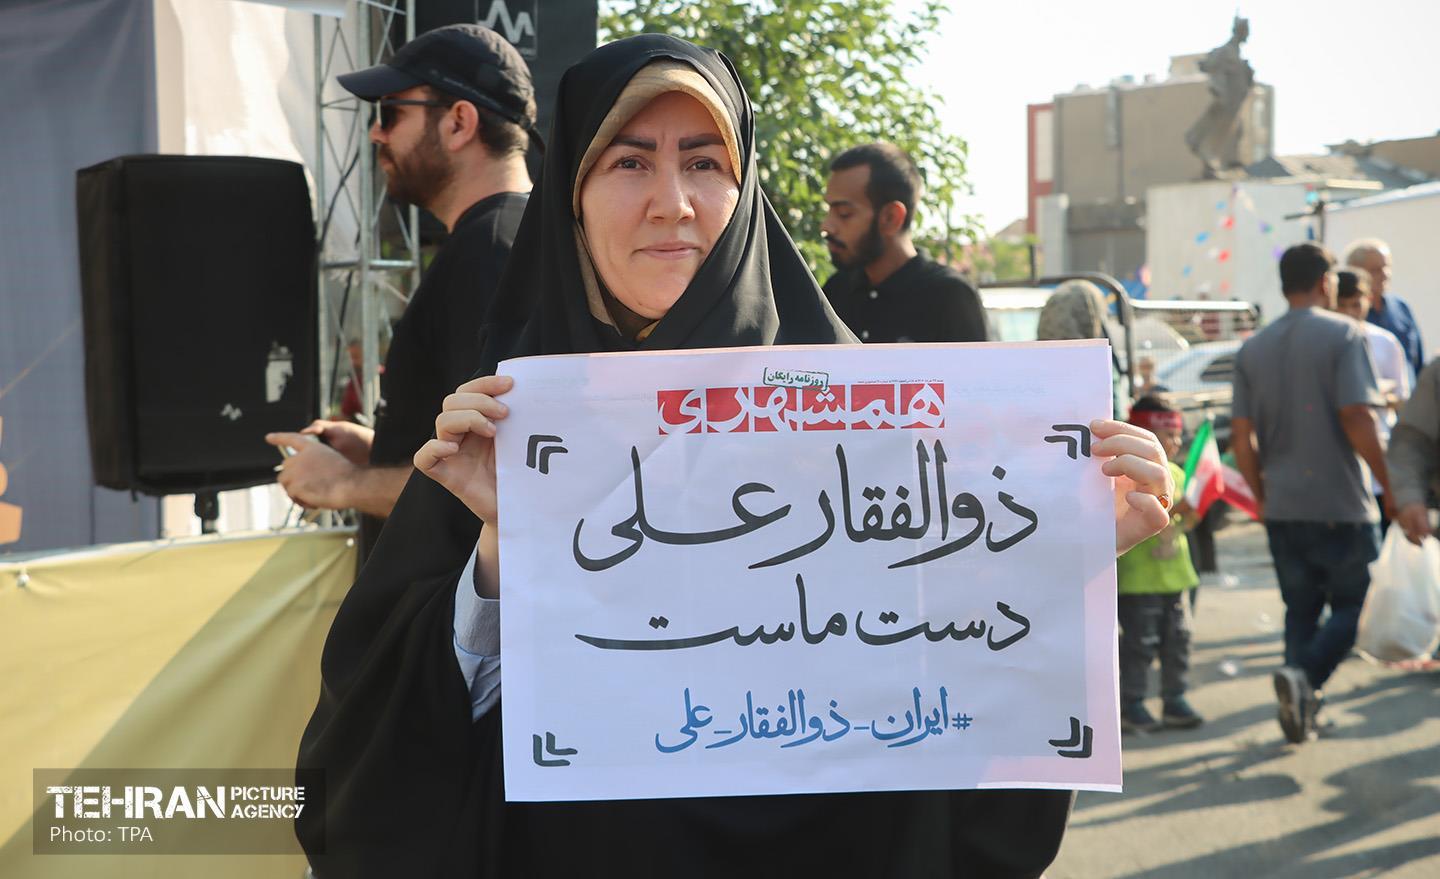 روزنامه رایگان
همشهری
ذوالفقار علی
دست ماست
#ایران_ذوالفقار_علی
TEHRAN PICTURE AGENCY
Photo: TPA